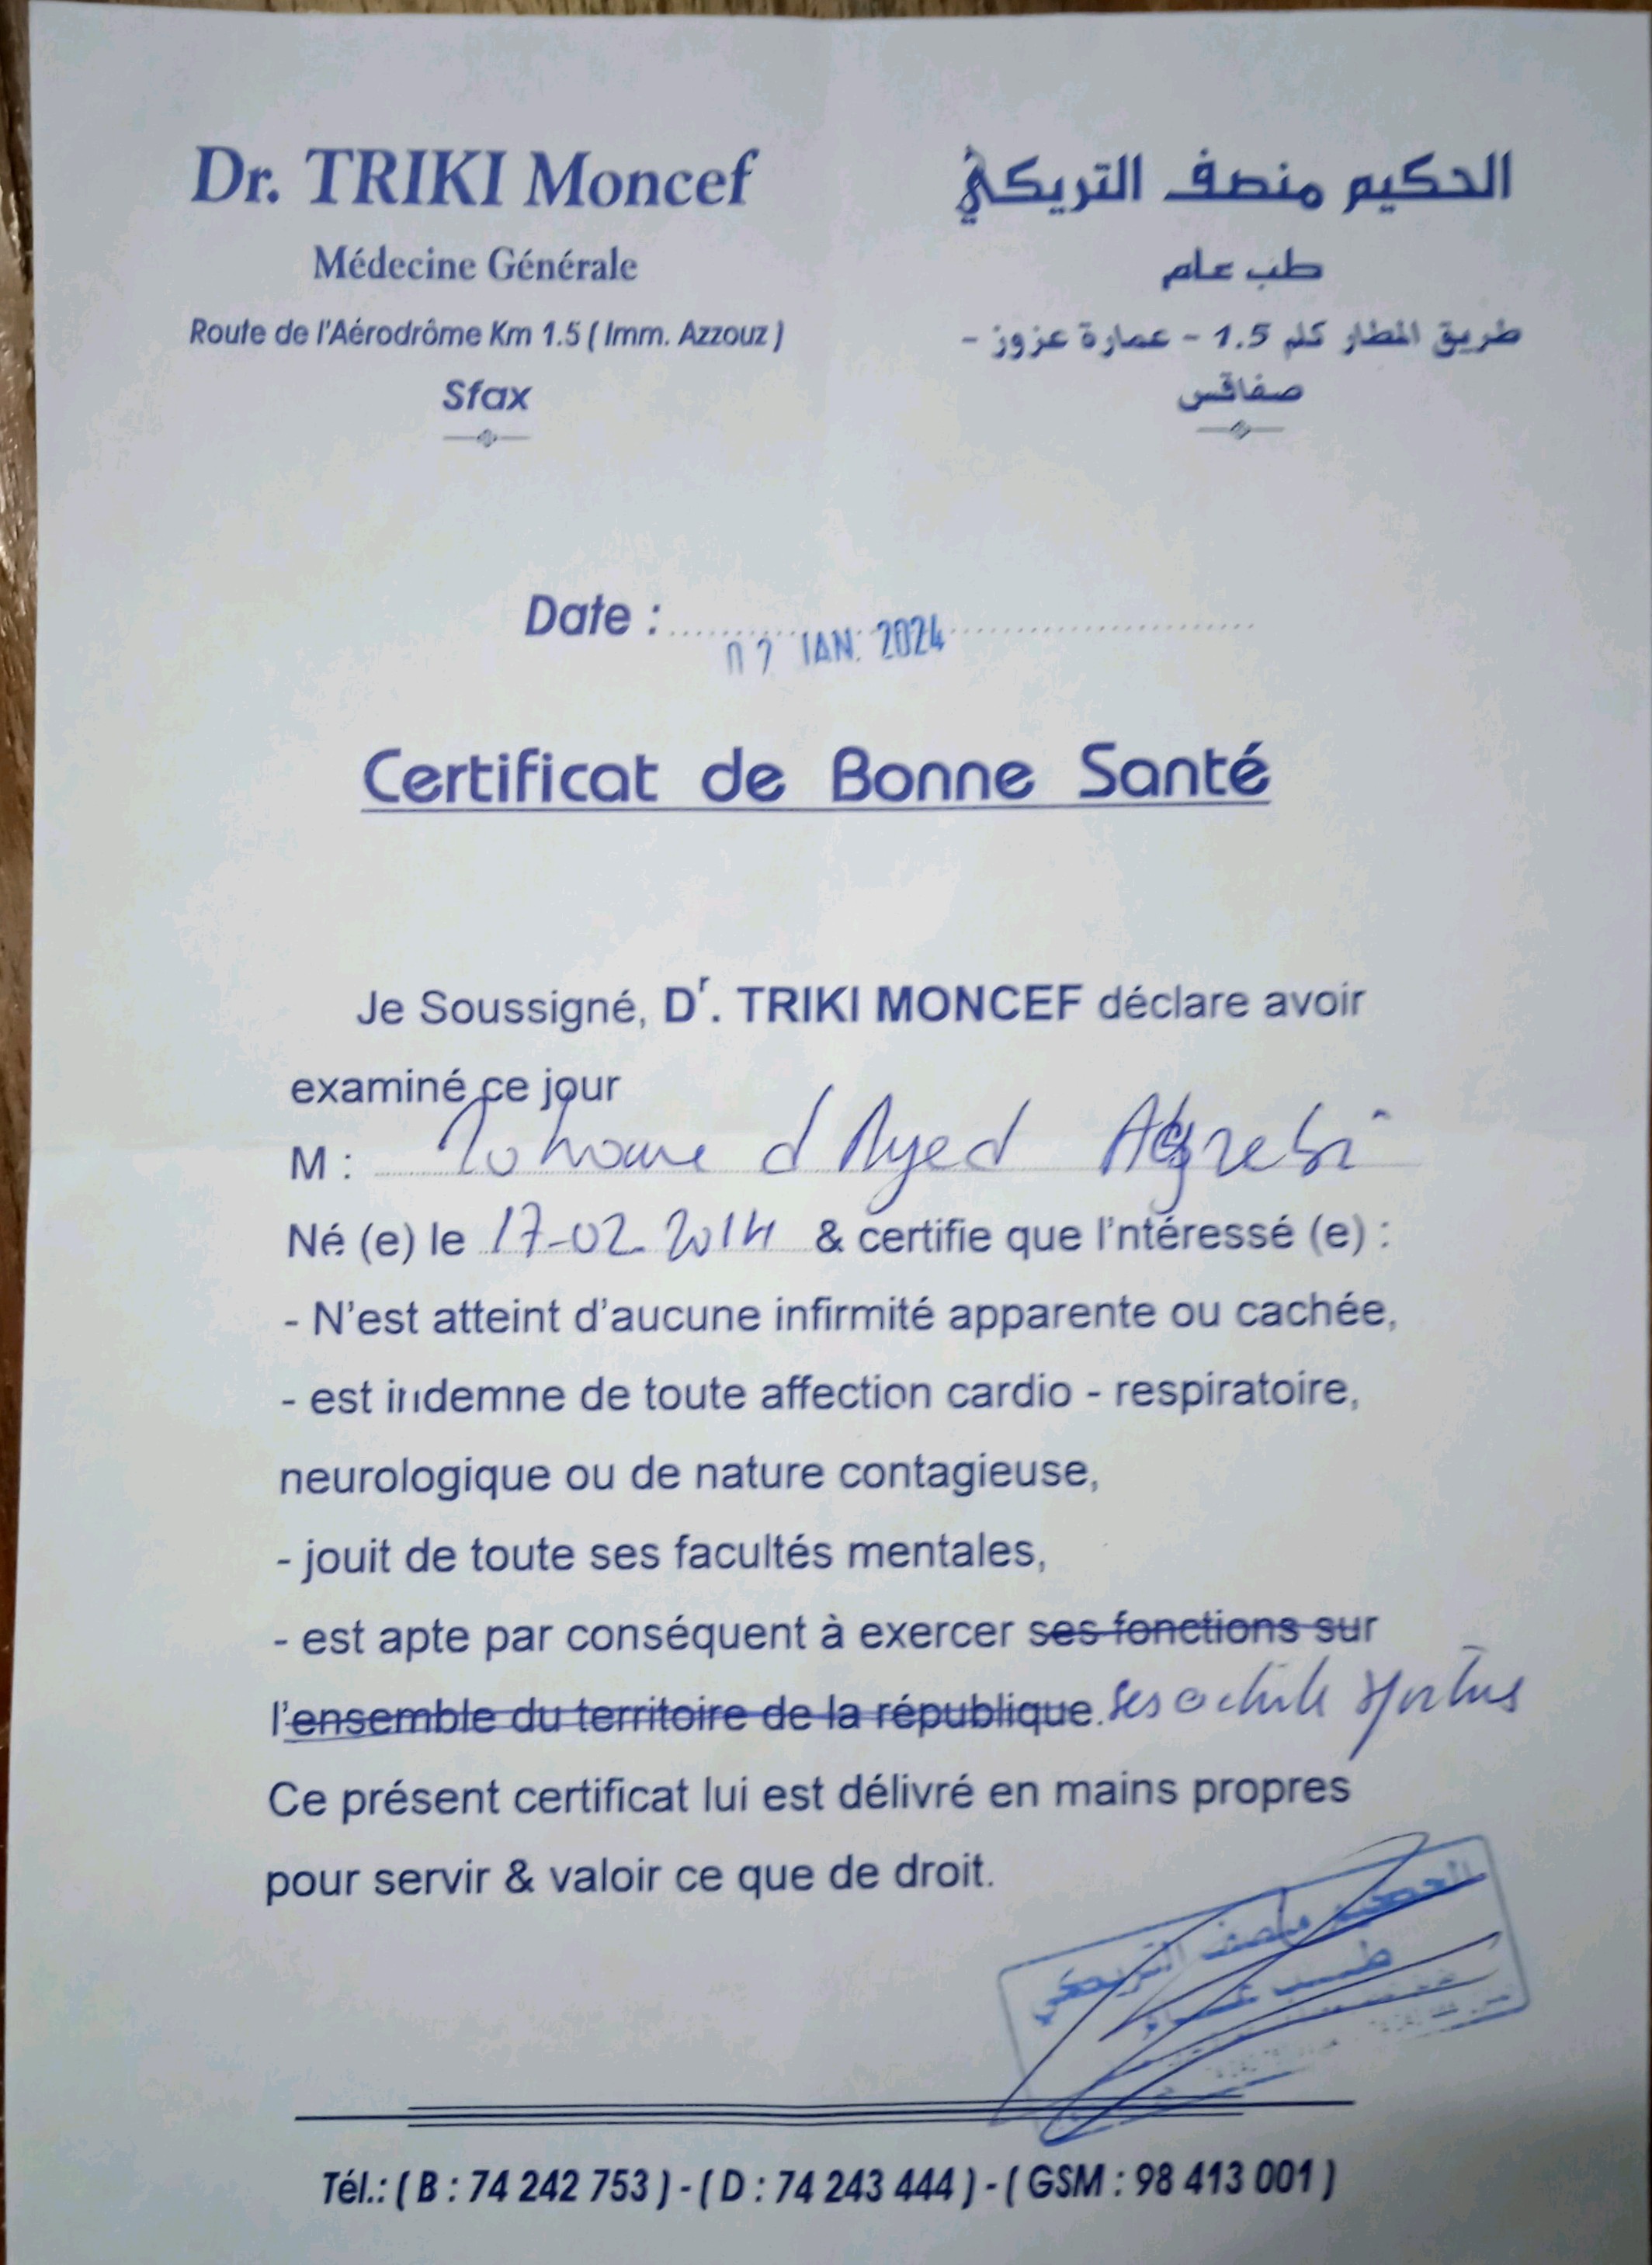 Dr. TRIKI Moncef
Médecine Générale
Route de l'Aérodrôme Km 1.5 ( Imm. Azzouz )
Sfax
الحكيم منصف التريكي
طب عام
طريق المطار كلم 1.5 - عمارة عزوز -
صفاقس
Date :
JAN. 2024
Certificat de Bonne Santé
Je Soussigné, Dr. TRIKI MONCEF déclare avoir
examiné ce jour
M : d Ayed
Né (e) le 17-02-2014 & certifie que l'ntéressé (e) :
- N'est atteint d'aucune infirmité apparente ou cachée,
- est indemne de toute affection cardio - respiratoire,
neurologique ou de nature contagieuse,
- jouit de toute ses facultés mentales,
- est apte par conséquent à exercer ses fonctions sur
l'ensemble du territoire de la république. ses
Ce présent certificat lui est délivré en mains propres
pour servir & valoir ce que de droit.
الحكيم منصف التريكي
طب عام
Tél.: ( B : 74 242 753 ) - ( D : 74 243 444 ) - ( GSM : 98 413 001 )